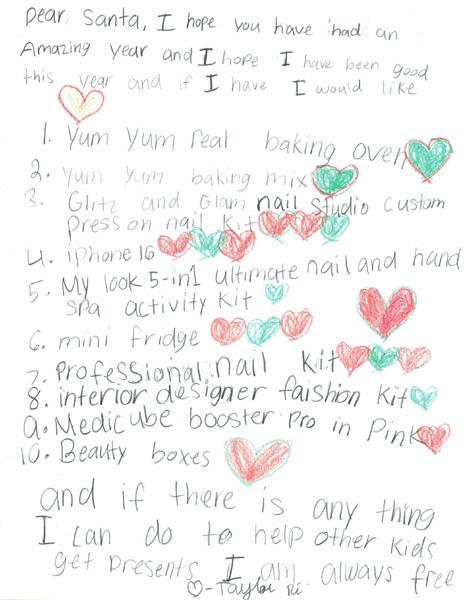 Dear, Santa, I hope you have had an
Amazing year and I hope I have been good
this year and if I have I would like
1. Yum Yum real baking oven
2. Yum Yum baking mix
3. Glitz and Glam nail Studio custom
Press on nail Kit
4. iPhone 16
5. My look 5-in1 ultimate nail and hand
spa activity Kit
6. mini fridge
7. Professional nail Kit
8. interior designer faishion Kit
9. Medicube booster Pro in Pink
10. Beauty boxes
and if there is any thing
I can do to help other Kids
get Presents I am always free
♡-Taylor Ri.